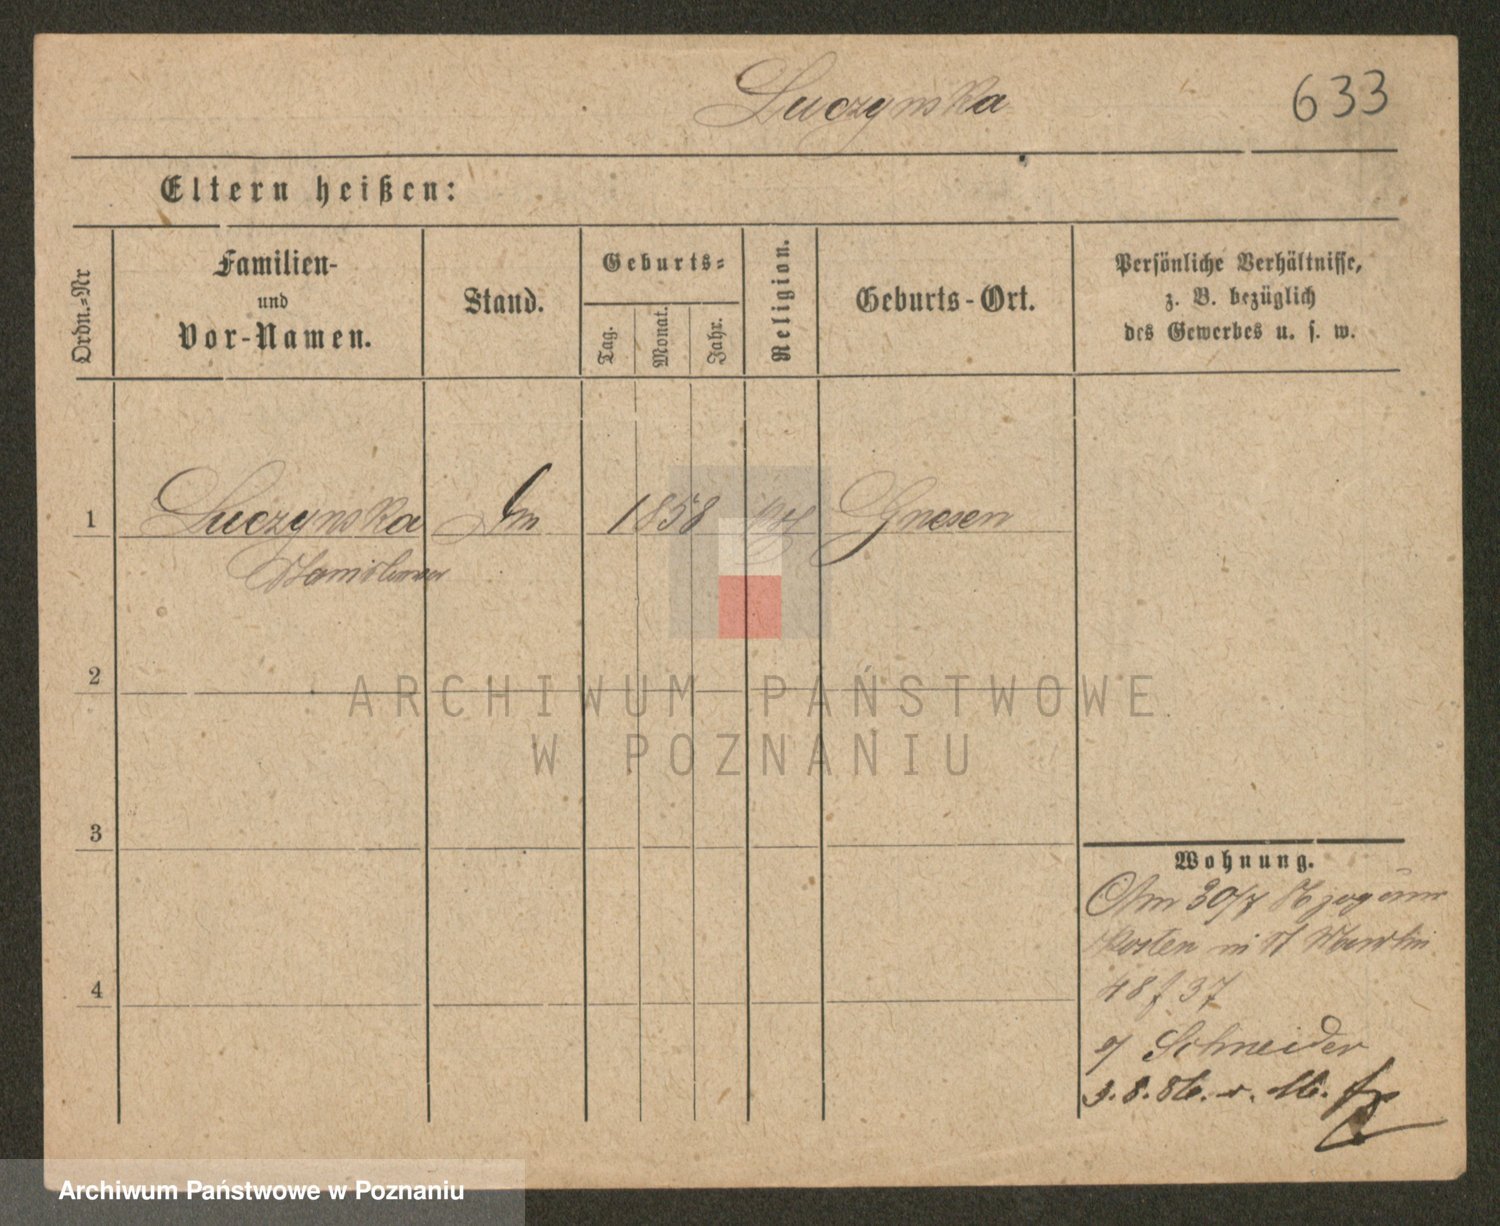 Luczynska 633
Eltern heißen:
Ordn.=Nr
Familien-
und
Vor-Namen.
Stand.
Geburts=
Tag.
Monat.
Jahr.
Religion.
Geburts-Ort.
Persönliche Verhältnisse,
z. B. bezüglich
des Gewerbes u. s. w.
1 Luczynska 1858 Gnesen
2
3
4
Wohnung.
Am 30/7
Kosten Martin
48 37
Schneider
3.8.86.
ARCHIWUM PAŃSTWOWE
W POZNANIU
Archiwum Państwowe w Poznaniu